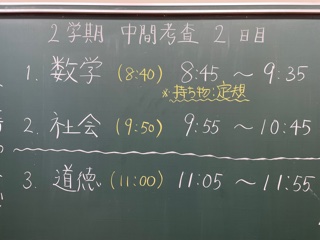 2学期 中間考査 2日目
1. 数学 (8:40) 8:45 〜 9:35
※持ち物:定規
2. 社会 (9:50) 9:55 〜 10:45
3. 道徳 (11:00) 11:05 〜 11:55